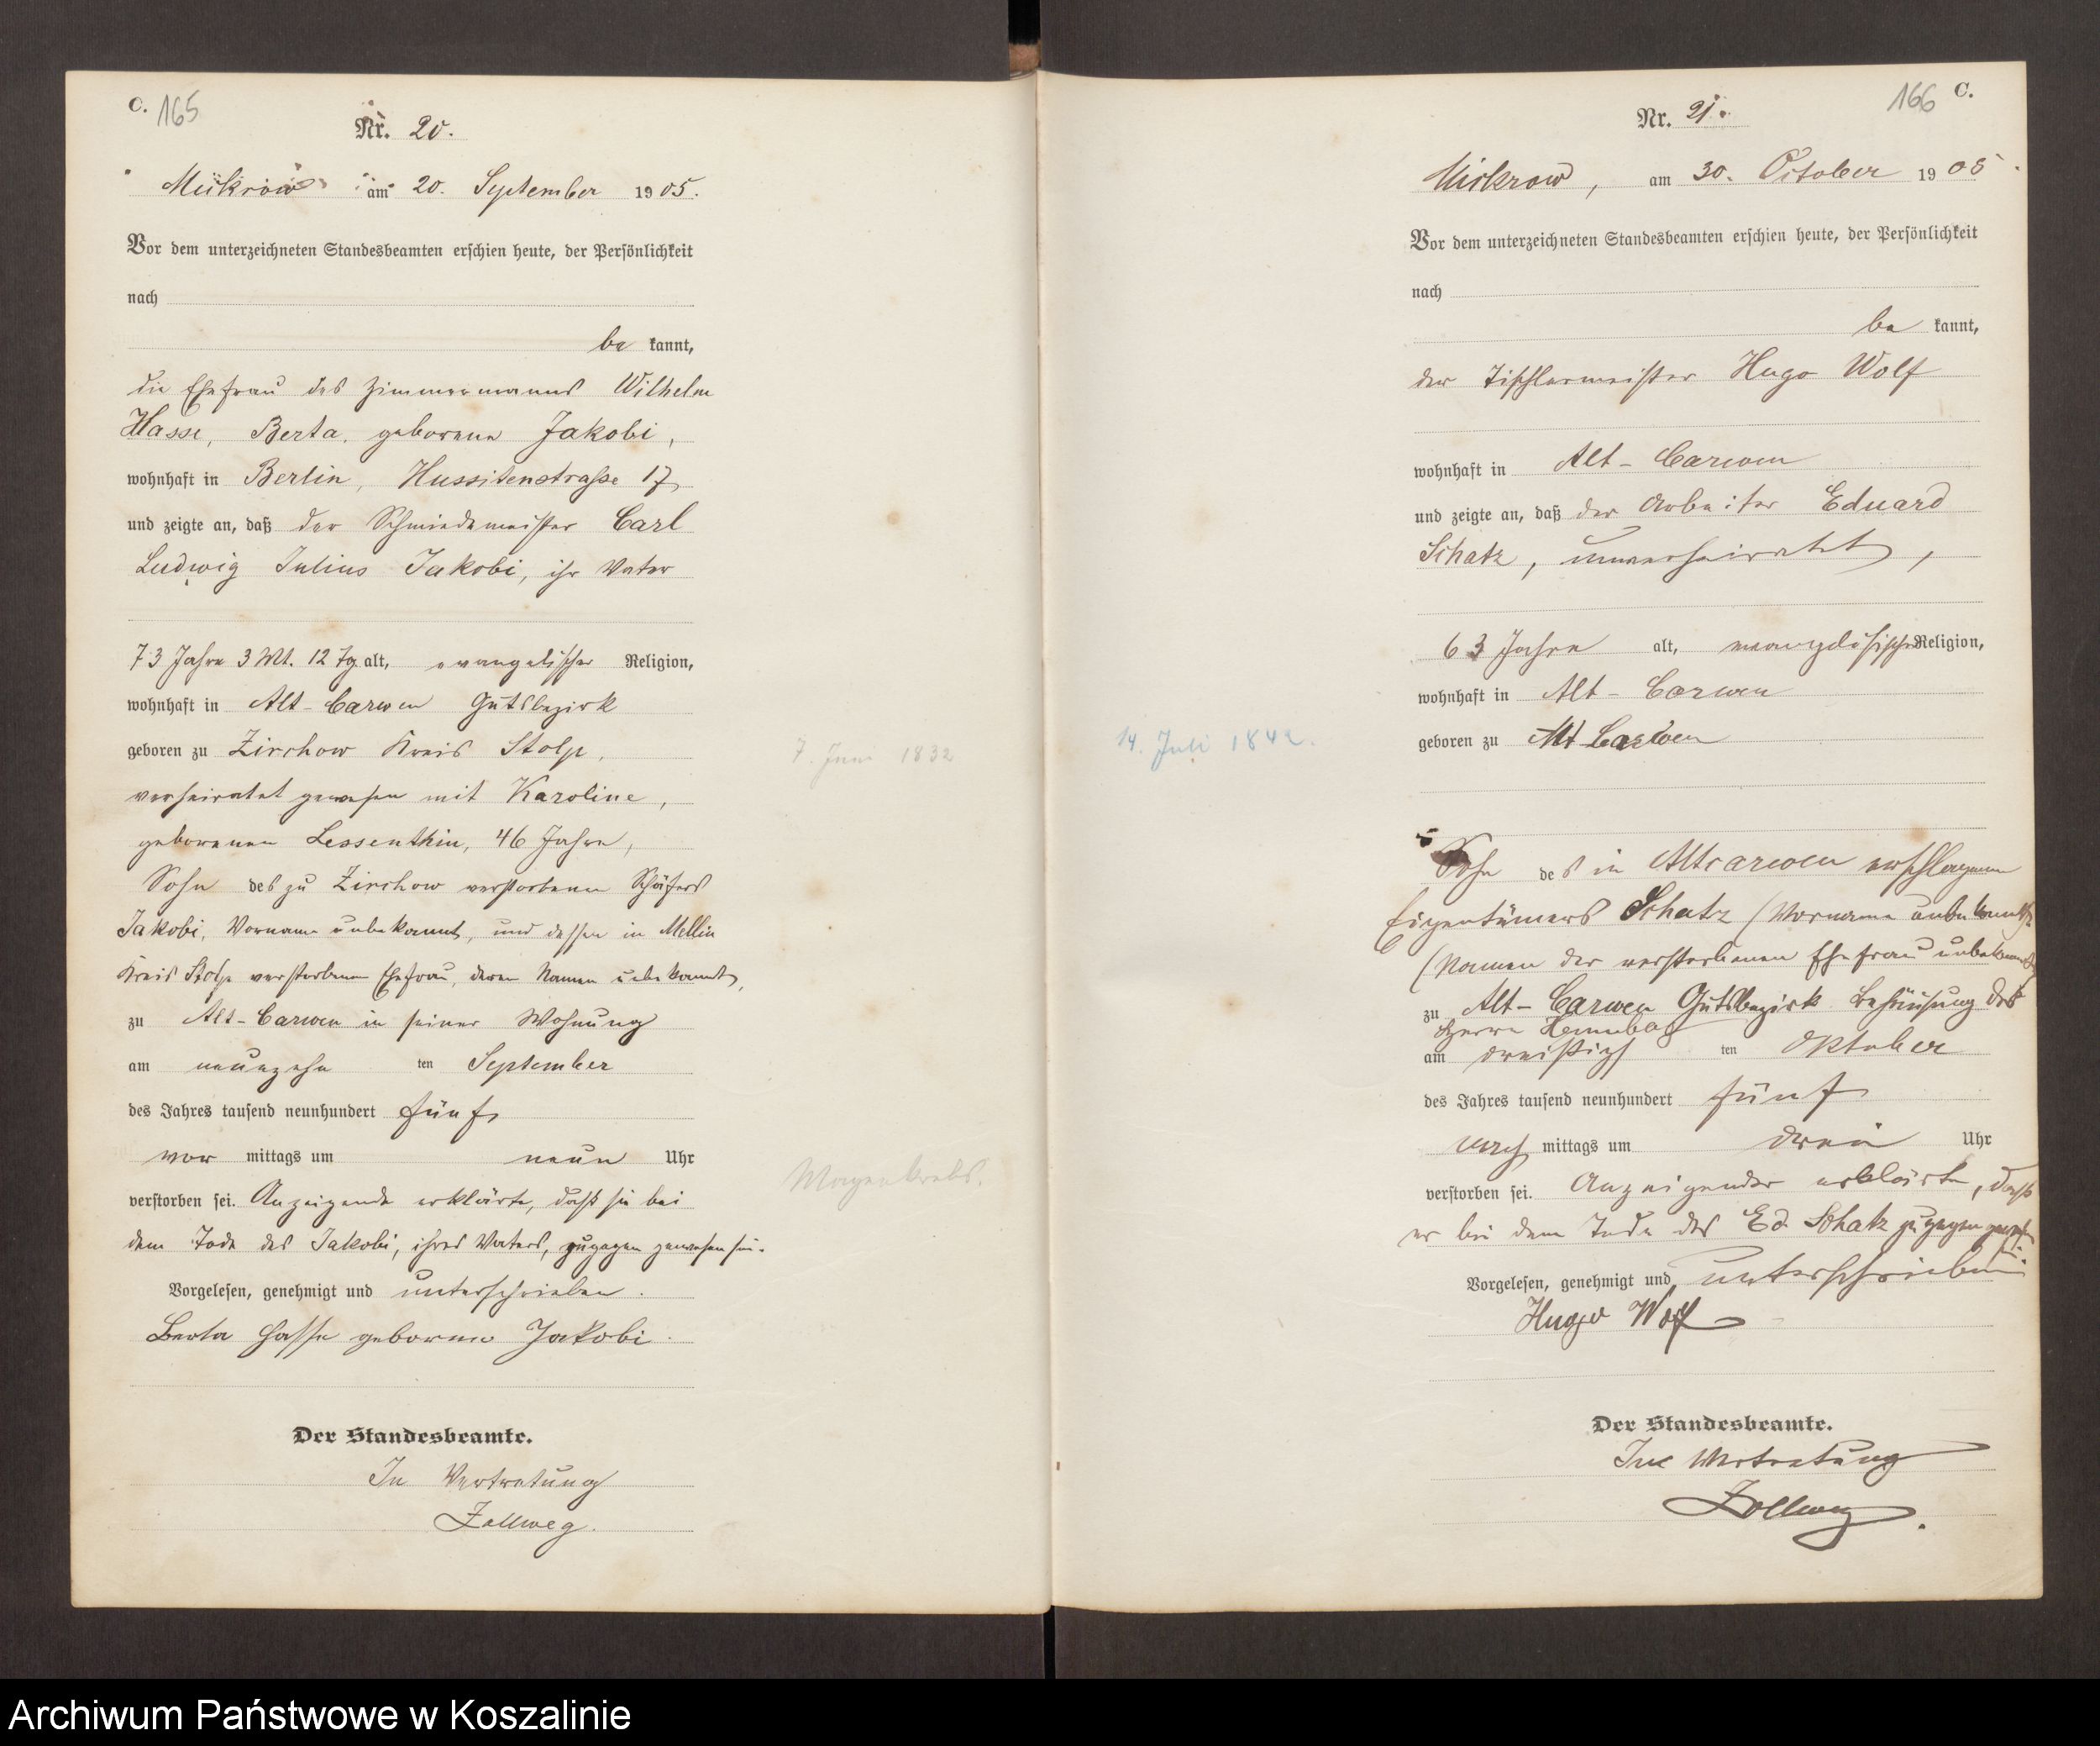 C. 165
Nr. 20.
Mickrow am 20. September 1905.
Vor dem unterzeichneten Standesbeamten erschien heute, der Persönlichkeit
nach
be kannt,
die Ehefrau des Zimmermanns Wilhelm
Hasse, Berta, geborene Jakobi,
wohnhaft in Berlin, Hussitenstraße 17,
und zeigte an, daß der Schmiedemeister Carl
Ludwig Julius Jakobi, ihr Vater
73 Jahre 3 Mt. 12 Tg. alt, evangelischer Religion,
wohnhaft in Alt-Carwen Gutsbezirk
geboren zu Zirchow Kreis Stolp,
7. Juni 1832
verheiratet gewesen mit Karoline,
geborenen Lessenthin, 46 Jahre,
Sohn des zu Zirchow verstorbenen Schäfers
Jakobi, Vorname unbekannt, und dessen in Mellin
Kreis Stolp verstorbenen Ehefrau, deren Namen unbekannt,
zu Alt-Carwen in seiner Wohnung
am neunzehn ten September
des Jahres tausend neunhundert fünf
vor mittags um neun Uhr
Magenkrebs.
verstorben sei. Anzeigende erklärte, daß sie bei
dem Tode des Jakobi, ihres Vaters, zugegen gewesen sei.
Vorgelesen, genehmigt und unterschrieben.
Berta Hasse geborene Jakobi.
Der Standesbeamte.
In Vertretung
Zollweg.
166 C.
Nr. 21.
Mickrow, am 30. October 1905.
Vor dem unterzeichneten Standesbeamten erschien heute, der Persönlichkeit
nach
be kannt,
der Tischlermeister Hugo Wolf
wohnhaft in Alt-Carwen
und zeigte an, daß der Arbeiter Eduard
Schatz, unverheiratet,
63 Jahre alt, evangelischer Religion,
wohnhaft in Alt-Carwen
14. Juli 1842.
geboren zu Alt Carwen
Sohn des in Altcarwen
Eigentümers Schatz (Vorname unbekannt)
(Namen der verstorbenen Ehefrau unbekannt)
zu Alt-Carwen Gutsbezirk Behausung des
Herrn
am dreißigs ten Oktober
des Jahres tausend neunhundert fünf
nach mittags um drei Uhr
verstorben sei. Anzeigender erklärte, daß
er bei dem Tode des Ed. Schatz zugegen gewesen sei.
Vorgelesen, genehmigt und unterschrieben
Hugo Wolf
Der Standesbeamte.
In Vertretung
Zollweg.
Archiwum Państwowe w Koszalinie